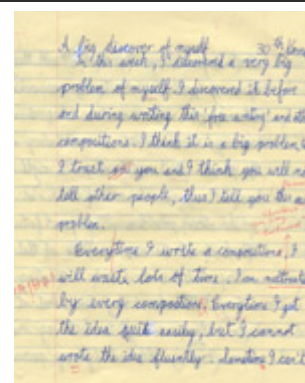 A big discover of myself 30th
In this week, I discovered a very big
problem of myself. I discovered it before
and during writing this 'free writing' and
compositions. I think it is a big problem
I trust on you and I think you will
tell other people, thus I tell you this
problem.
Everytime I write a compositions, I
will waste lots of time. I am
by every composition. Everytime I get
the idea easily, but I cannot
wrote the idea fluently. Sometime I can't